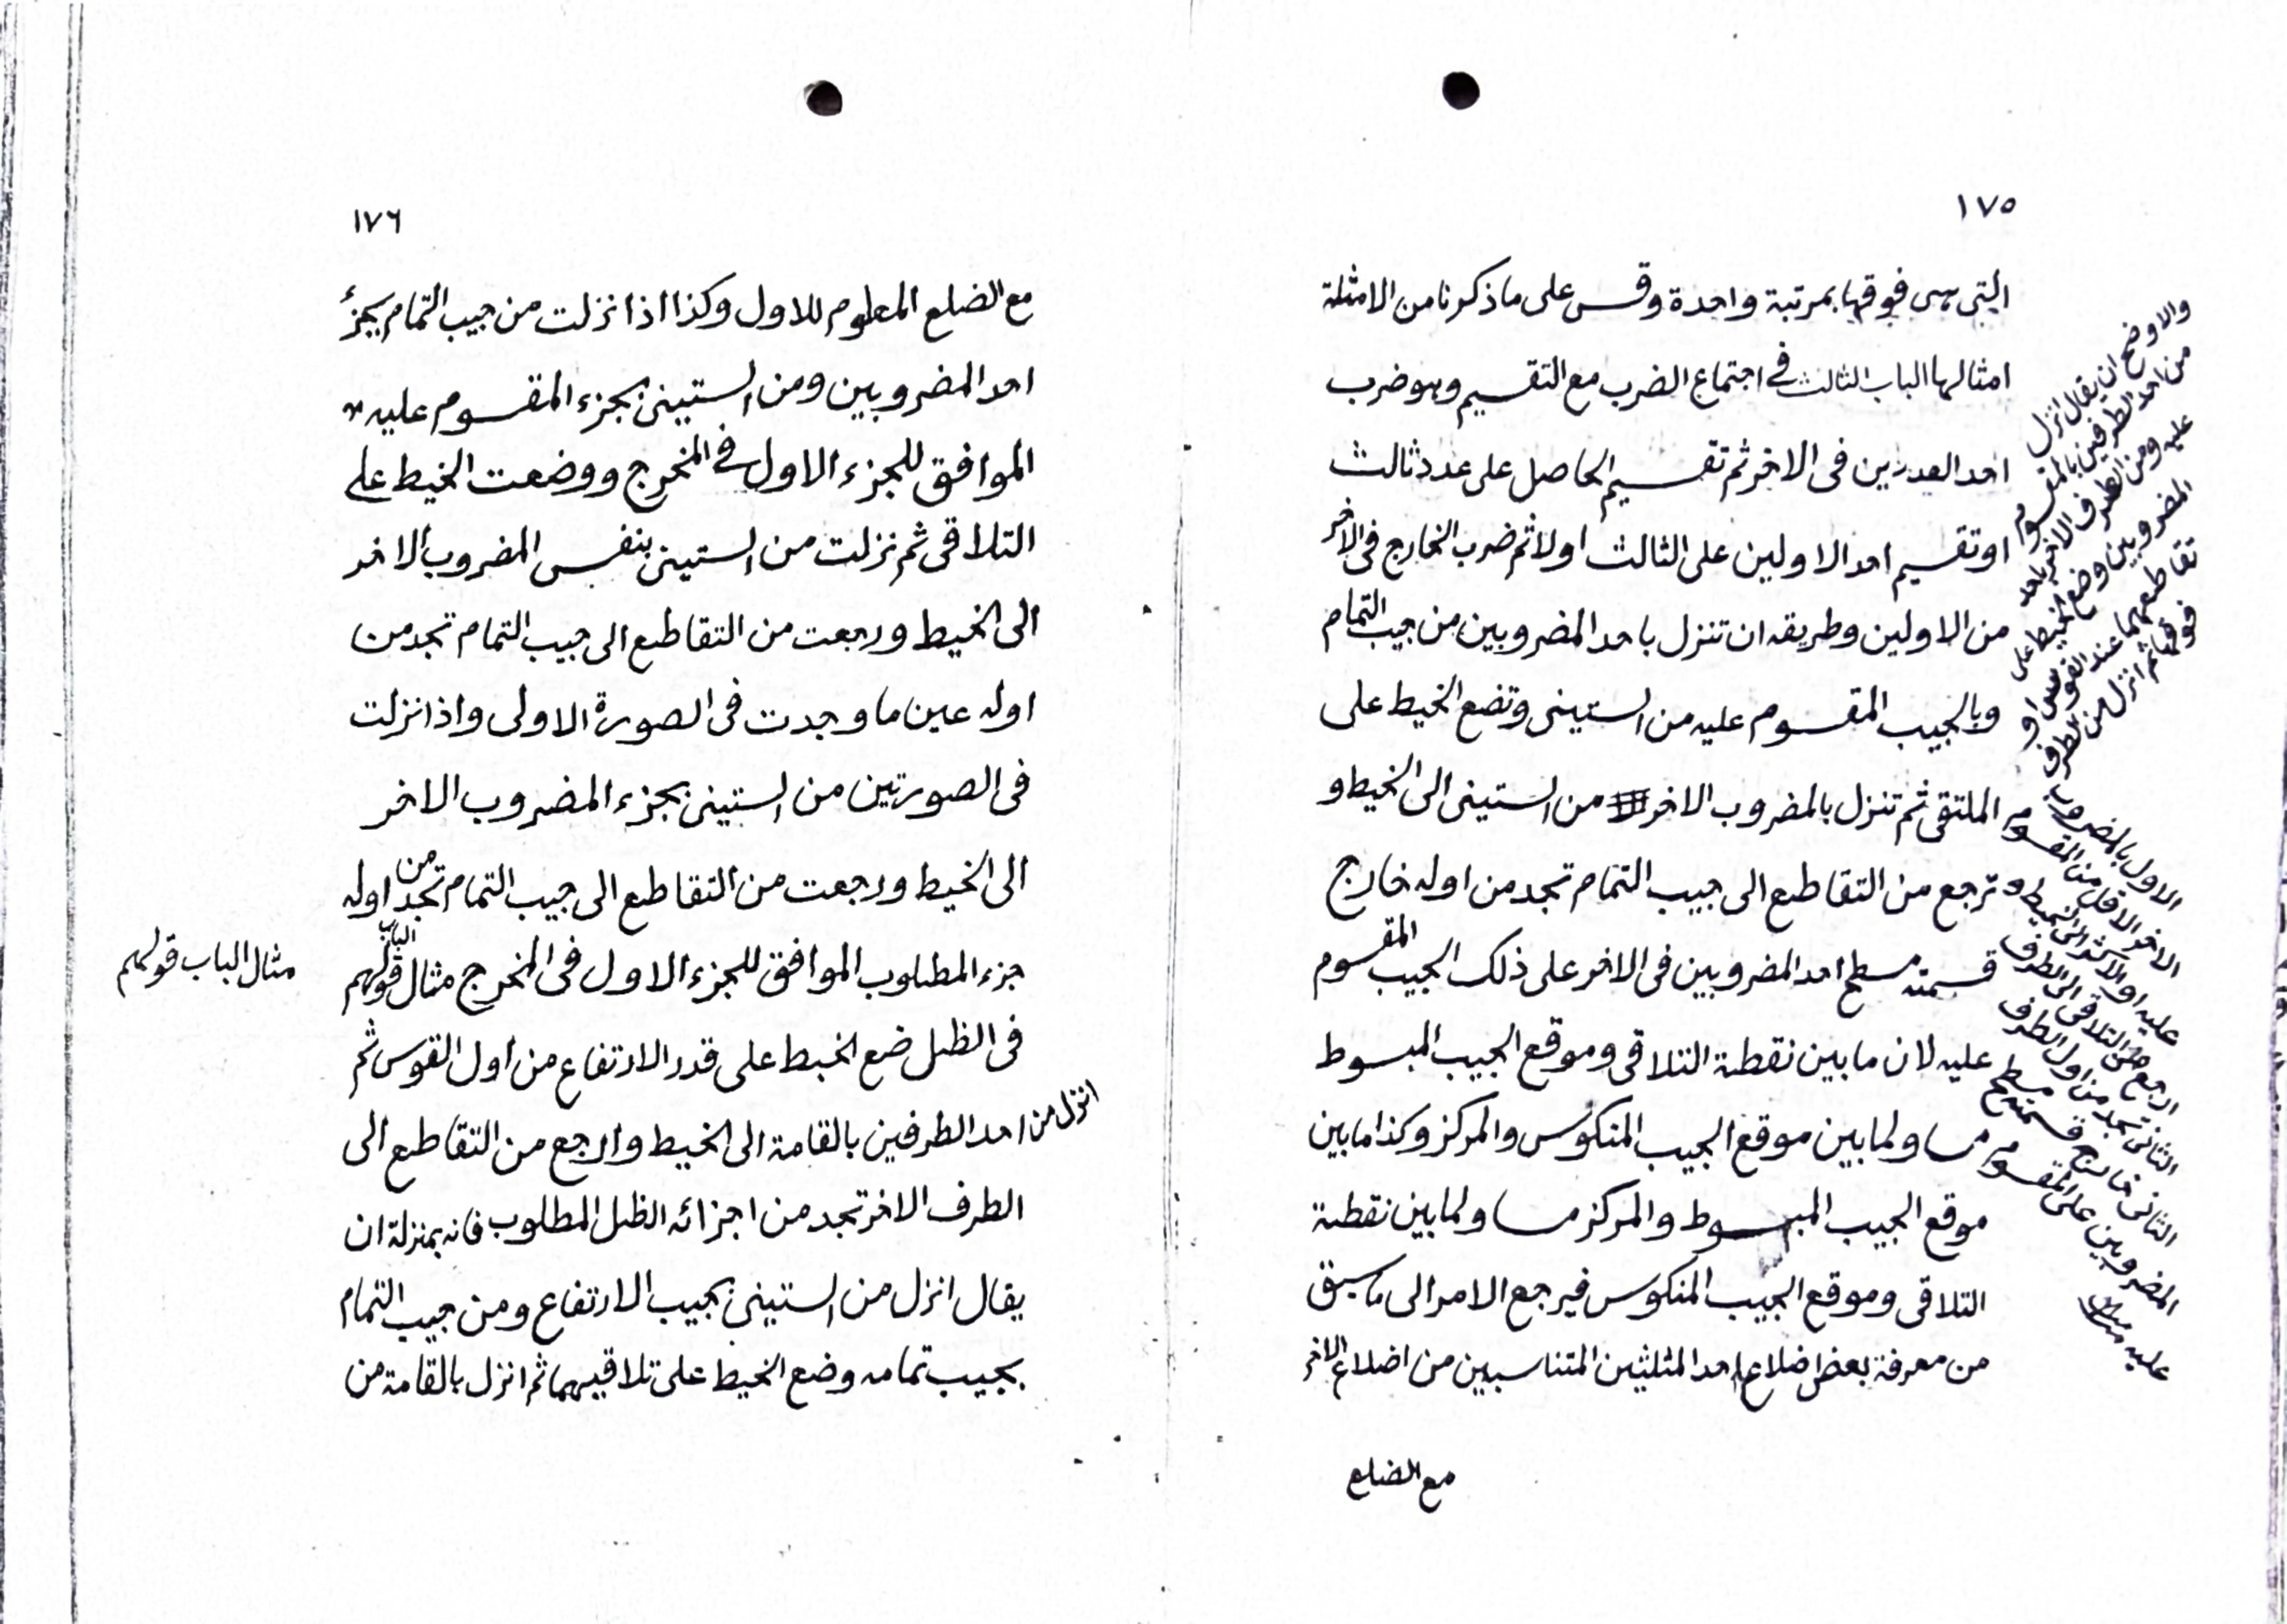 ١٧٥
التى هى فوقها بمرتبة واحدة وقس على ما ذكرنا من الامثلة
امثالها الباب الثالث في اجتماع الضرب مع التقسيم وهو ضرب
احد العددين فى الاخر ثم تقسيم الحاصل على عدد ثالث
او تقسيم احد الاولين على الثالث اولا ثم ضرب الخارج فى الاخر
من الاولين وطريقه ان تنزل باحد المضروبين من جيب التمام
وبالجيب المقسوم عليه من الستينى وتضع الخيط على
الملتقى ثم تنزل بالمضروب الاخر من الستينى الى الخيط و
ترجع من التقاطع الى جيب التمام تجد من اوله خارج
قسمته مسطح احد المضروبين فى الاخر على ذلك الجيب المقسوم
عليه لان ما بين نقطة التلاقى وموقع الجيب المبسوط
مساو لما بين موقع الجيب المنكوس والمركز وكذا ما بين
موقع الجيب المبسوط والمركز مساو لما بين نقطة
التلاقى وموقع الجيب المنكوس فيرجع الامر الى ما سبق
من معرفة بعض اضلاع احد المثلثين المتناسبين من اضلاع الاخر
مع الضلع
والاوضح ان يقال انزل
من احد الطرفين بالمقسوم
عليه ومن الطرف الاخر باحد
المضروبين وضع الخيط على
تقاطعهما عند القوس او
فوقها ثم انزل من الطرف
الاول بالمضروب
الاخر الاقل من المقسوم
عليه او الاكثر الى الخيط و
ارجع من التلاقى الى الطرف
الثانى تجد من اول الطرف
الثانى خارج قسمته مسطح
المضروبين على المقسوم
عليه
١٧٦
مع الضلع المعلوم للاول وكذا اذا نزلت من جيب التمام بجزء
احد المضروبين ومن الستينى بجزء المقسوم عليه
الموافق للجزء الاول في المخرج ووضعت الخيط على
التلاقى ثم نزلت من الستينى بنفس المضروب الاخر
الى الخيط ورجعت من التقاطع الى جيب التمام تجد من
اوله عين ما وجدت فى الصورة الاولى واذا نزلت
فى الصورتين من الستينى بجزء المضروب الاخر
الى الخيط ورجعت من التقاطع الى جيب التمام تجد من اوله
جزء المطلوب الموافق للجزء الاول فى المخرج مثال الباب قولهم
فى الظل ضع الخيط على قدر الارتفاع من اول القوس ثم
انزل من احد الطرفين بالقامة الى الخيط وارجع من التقاطع الى
الطرف الاخر تجد من اجزائه الظل المطلوب فانه بمنزلة ان
يقال انزل من الستينى بجيب الارتفاع ومن جيب التمام
بجيب تمامه وضع الخيط على تلاقيهما ثم انزل بالقامة من
مثال الباب قولهم